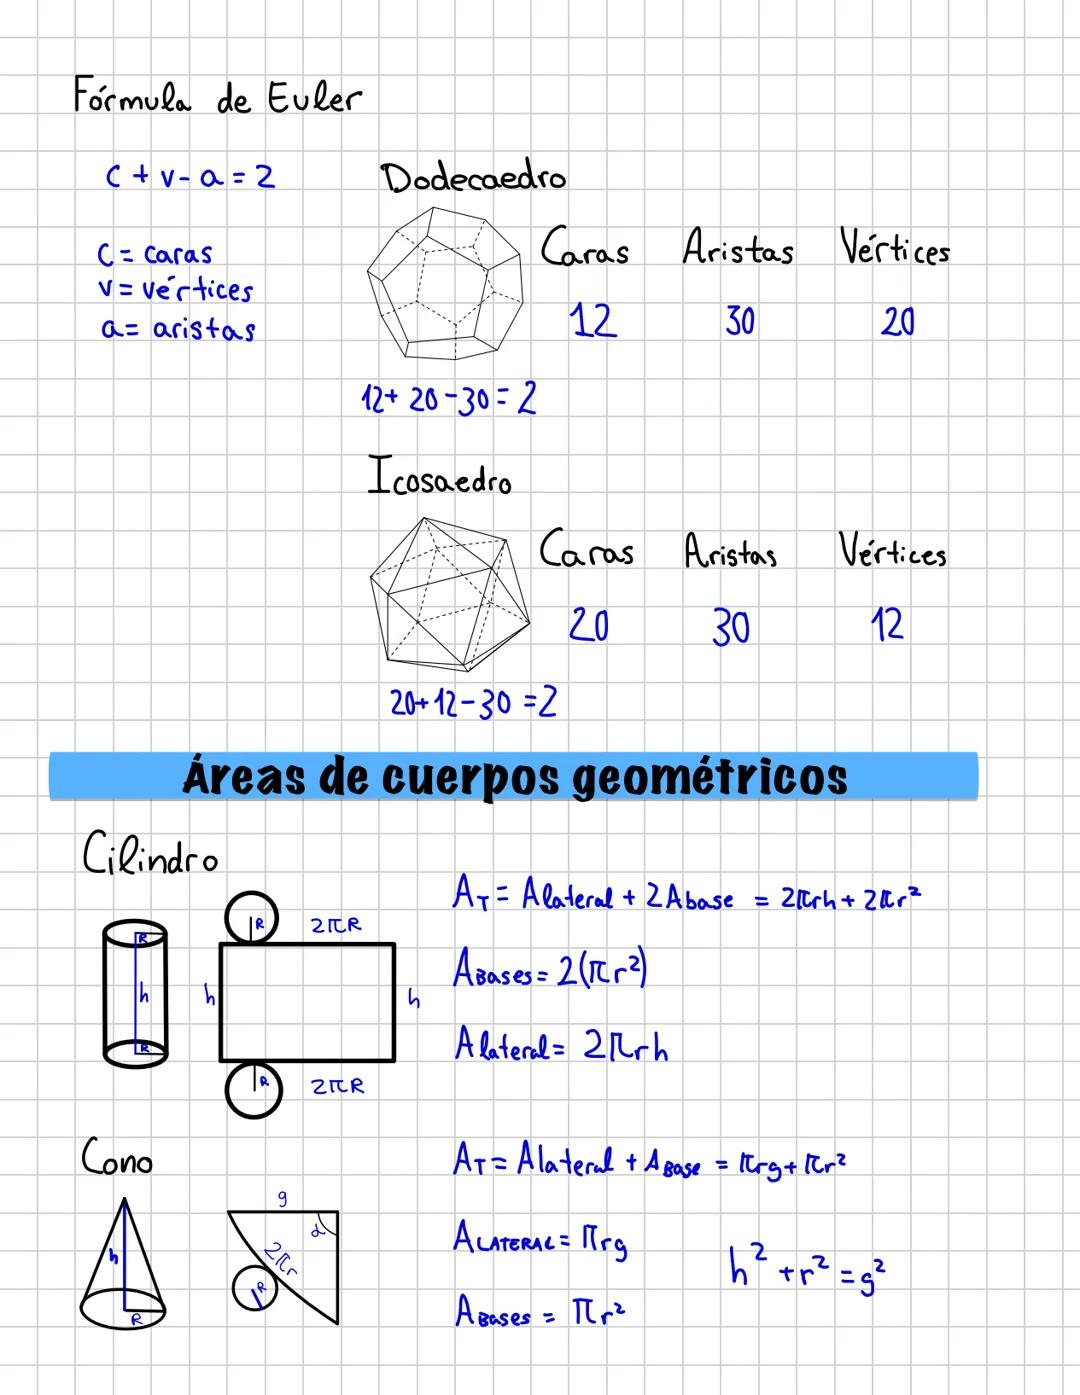 Fórmula de Euler
C + v - a = 2
Dodecaedro
C = caras
v = vértices
a = aristas
Caras Aristas Vértices
12 30 20
12 + 20 - 30 = 2
Icosaedro
Caras Aristas Vértices
20 30 12
20 + 12 - 30 = 2
Áreas de cuerpos geométricos
Cilindro
R
h
R
R 2πR
h h
R 2πR
AT = Alateral + 2Abase = 2πrh + 2πr²
ABases = 2(πr²)
Alateral = 2πrh
Cono
h
R
g
α
2πr
R
AT = Alateral + ABase = πrg + πr²
ALATERAL = πrg
h² + r² = g²
ABases = πr²